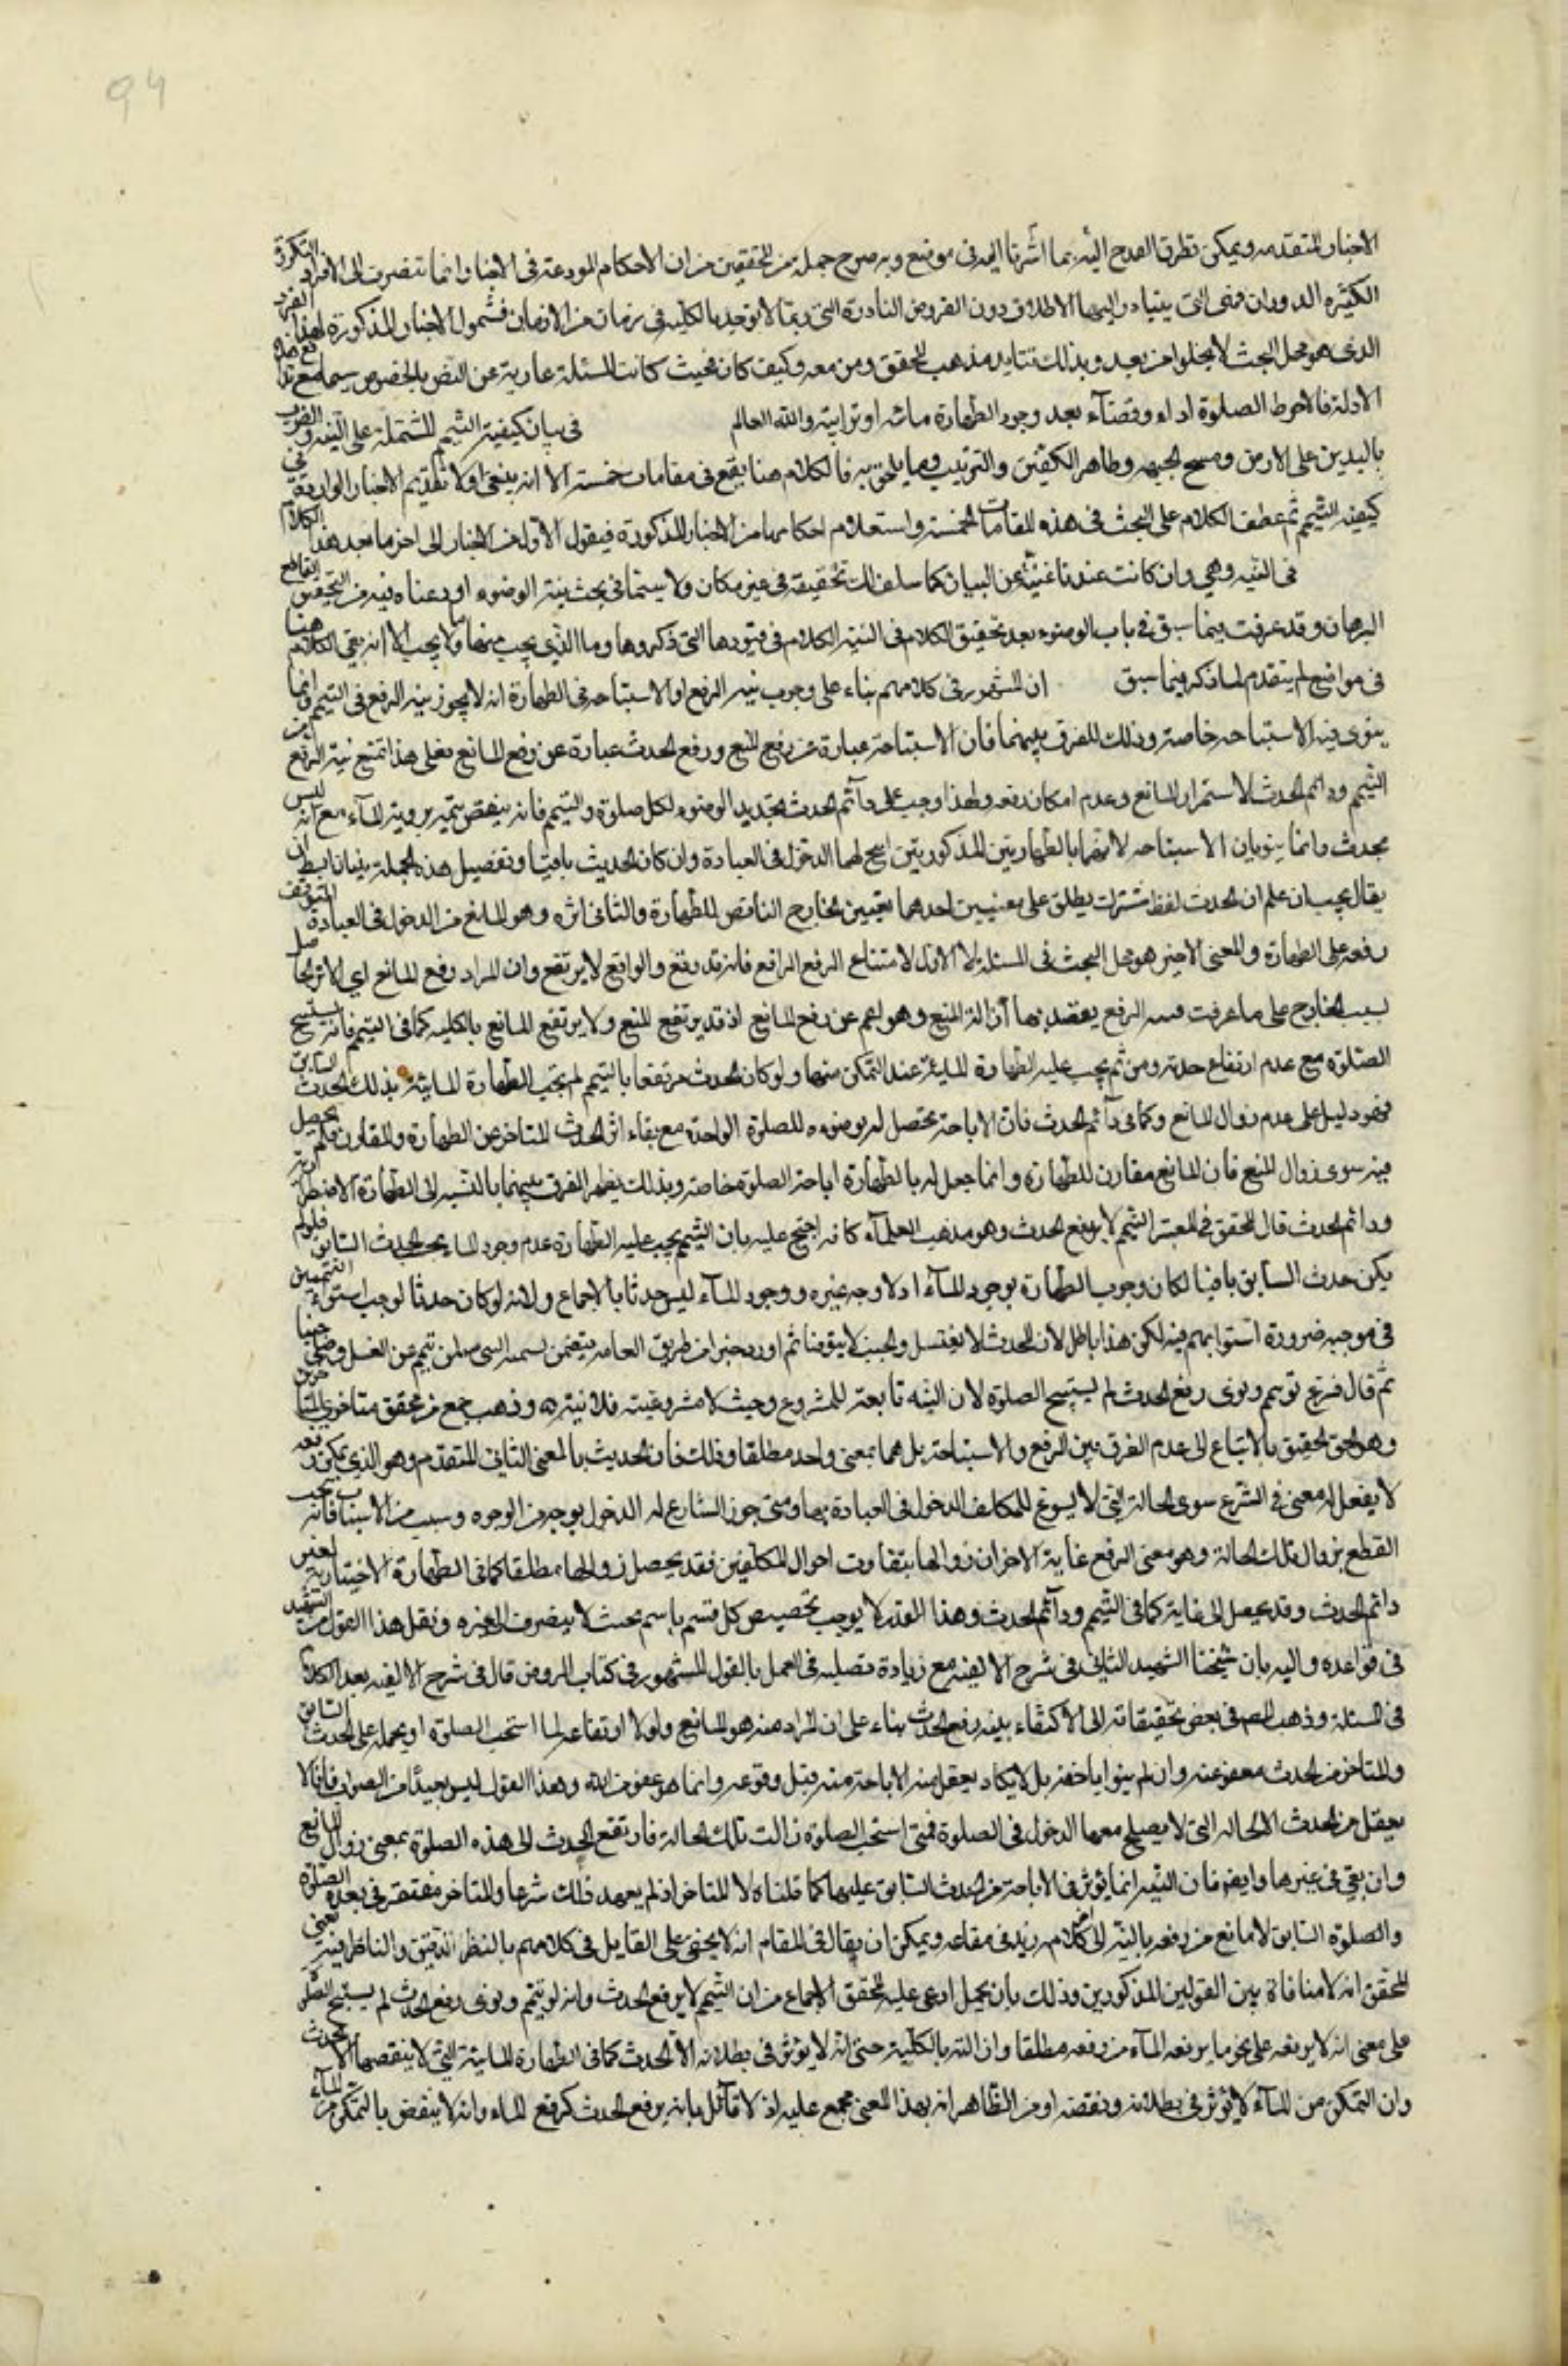 94
الاخبار المتقدمه ويمكن تطرق القدح اليه بما اشرنا اليه فى موضع وبه صرح جملة من المحققين من ان الاحكام المودعة فى الاخبار انما تنصرف الى الافراد المتكررة
الكثيرة الدوران فهى التى يتبادر اليها الاطلاق دون الفروض النادرة التى ربما لا توجد بالكليه فى زمان من الازمان فشمول الاخبار المذكورة لهذا الفرد
الذى هو محل البحث لا يخلوا من بعد وبذلك تتايد مذهب المحقق ومن معه وكيف كان فحيث كانت المسئلة عارية عن النص بالخصوص سيما مع
الادلة فالاحوط الصلوة اداء وقضآء بعد وجود الطهارة مائيه او ترابية والله العالم فى بيان كيفية التيمم المشتملة على النيه والضرب
باليدين على الارض ومسح الجبهه وظاهر الكفين والترتيب وما يلحق به فالكلام هنا يقع فى مقامات خمسة الا انه ينبغى اولا تقديم الاخبار الواردة فى
كيفيه التيمم ثم عطف الكلام على البحث فى هذه المقامات الخمسة واستعلام احكامها من الاخبار المذكورة فيقول الاول من الاخبار الى اخر ما بعد هذا الكلام
فى النيه وهى وان كانت عندنا غنية عن البيان كما سلف لك تحقيقه فى غير مكان ولا سيما فى بحث نية الوضوء اودعناه فيه من التحقيق القاطع
البرهان وقد عرفت فيما سبق فى باب الوضوء بعد تحقيق الكلام فى النية الكلام فى قيودها التى ذكروها وما الذى يجب منها وما لا يجب الا انه بقى الكلام هنا
فى مواضع لم يتقدم لها ذكر فيما سبق ان المشهور فى كلامهم بناء على وجوب نية الرفع او الاستباحه فى الطهارة انه لا يجوز نية الرفع فى التيمم وانما
ينوى فيه الاستباحه خاصة وذلك للفرق بينهما فان الاستباحة عبارة عن رفع المنع ورفع الحدث عبارة عن رفع المانع فعلى هذا تمتنع نية الرفع من
التيمم ودائم الحدث لاستمرار المانع وعدم امكان رفعه ولهذا وجب على دآئم الحدث تجديد الوضوء لكل صلوة والتيمم فانه ينتقض تيممه بروية المآء مع انه ليس
بحدث وانما ينويان الاستباحه لانهما بالطهارتين المذكورتين ابيح لهما الدخول فى العبادة وان كان الحدث باقيا وتفصيل هذه الجملة ان
يقال يجب ان علم ان الحدث لفظ مشترك يطلق على معنيين احدهما نفس الخارج الناقض للطهارة والثانى اثره وهو المانع من الدخول فى العبادة المتوقف
رفعه على الطهارة والمعنى الاخير هو محل البحث فى المسئلة لا الاول لامتناع الرفع الرافع فانه قد وقع والواقع لا يرتفع وان المراد رفع المانع اى الاثر الحاصل
بسبب الخارج على ما عرفت الرفع يقصد بها ازالة المنع وهو اعم عن رفع المانع اذ قد يرتفع المنع ولا يرتفع المانع بالكليه كما فى التيمم فانه يستبيح
الصلوة مع عدم ارتفاع حدثه ومن ثم يجب عليه الطهارة المائية عند التمكن منها ولو كان الحدث مرتفعا بالتيمم لم تجب الطهارة المائية بذلك الحدث السابق
فهو دليل على عدم زوال المانع وكما فى دآئم الحدث فان الاباحة تحصل له بوضوءه للصلوة الواحدة مع بقاء اثر الحدث المتاخر عن الطهارة والمقارن فلم يحصل
فيه سوى زوال المنع فان المانع مقارن للطهارة وانما جعل له بالطهارة اباحة الصلوة خاصة وبذلك يظهر الفرق بينهما بالنسبه الى الطهارة الاضطرارية
ودائم الحدث قال المحقق فى المعتبر التيمم لا يرفع الحدث وهو مذهب العلمآء كافه احتج عليه بان التيمم يجب عليه الطهارة عدم وجود الماء بحسب الحدث السابق فلو لم
يكن حدث السابق باقيا لكان وجوب الطهارة بوجود المآء اذ لا وجه غيره ووجود المآء ليس حدثا بالاجماع ولانه لو كان حدثا لوجب استوآء المتيممين
فى موجبه ضرورة استوايهم فيه لكن هذا باطل لان المحدث لا يغتسل والجنب لا يتوضا ثم اورد خبرا من طريق العامه يتضمن تسميه النبى من تيمم عن الغسل وصلى جنبا
ثم قال فرع لو تيمم ونوى رفع الحدث لم يستبح الصلوة لان النيه تابعة للمشروع وحيث لا مشروعية فلا نية وذهب جمع من محقق متاخرى المتاخرين
وهو الحق الحقيق بالاتباع الى عدم الفرق بين الرفع والاستباحة بل هما بمعنى واحد مطلقا وذلك فان الحدث بالمعنى الثانى المتقدم وهو الذى يمكن رفعه
لا يعقل له معنى فى الشرع سوى الحالة التى لا يسوغ للمكلف الدخول فى العبادة بها ومتى جوز الشارع له الدخول بوجه من الوجوه وسبب من الاسباب فانه يجب
القطع بزوال تلك الحالة وهو معنى الرفع غاية الامر ان زوالها بتفاوت احوال المكلفين فقد يحصل زوالها مطلقا كما فى الطهارة الاختيارية لغير
دائم الحدث وقد يحصل الى غاية كما فى التيمم ودآئم الحدث وهذا القدر لا يوجب تخصيص كل قسم باسم بحيث لا ينصرف الى غيره ونقل هذا القول عن الشهيد
فى قواعده واليه بان شيخنا الشهيد الثانى فى شرح الالفيه مع زيادة تصلبه فى العمل بالقول المشهور فى كتاب الروض قال فى شرح الالفيه بعد الكلام
فى المسئلة وذهب المص فى بعض تحقيقاته الى الاكتفاء بنيه رفع الحدث بناء على ان المراد منه هو المانع ولولا ارتفاعه لما استحب الصلوة او يحمله على الحدث السابق
والمتاخر من الحدث معفو عنه وان لم ينوا بل لا يكاد يعقل منه الاباحة منه قبل وقوعه وانما هو عفو من الله وهذا القول ليس ببعيد من الصواب فانا لا
نعقل من الحدث الا الحاله التى لا يصلح معها الدخول فى الصلوة فمتى استحب الصلوة زالت تلك الحالة فارتفع الحدث الى هذه الصلوة بمعنى زوال المانع
وان بقى فى غيرها وايض فان النيه انما يؤثر فى الاباحة من الحدث السابق عليها كما قلناه لا المتاخر اذ لم يعهد ذلك شرعا والمتاخر مغتفر فى بعده الصلوة
والصلوة السابق لا مانع من رفعه بالنية الى اخر كلامه زيد فى مقامه ويمكن ان يقال فى المقام انه لا يخفى على القايل فى كلامهم بالنظر الدقيق والناظر فيه بعين
المحقق انه لا منافاة بين القولين المذكورين وذلك بان يحمل ما ادعى عليه المحقق الاجماع من ان التيمم لا يرفع الحدث وانه لو تيمم ونوى رفع الحدث لم يستبح الصلوة
على معنى انه لا يرفعه على نحو ما يرفعه المآء من رفعه مطلقا وازالته بالكلية حتى انه لا يؤثر فى بطلانه الا الحدث كما فى الطهارة المائية التى لا ينقضها الا الحدث
وان التمكن من المآء لا يؤثر فى بطلانه ونقضه اذ من الظاهر انه بهذا المعنى مجمع عليه اذ لا قآئل بانه يرفع الحدث كرفع الماء وانه لا ينتقض بالتمكن من المآء